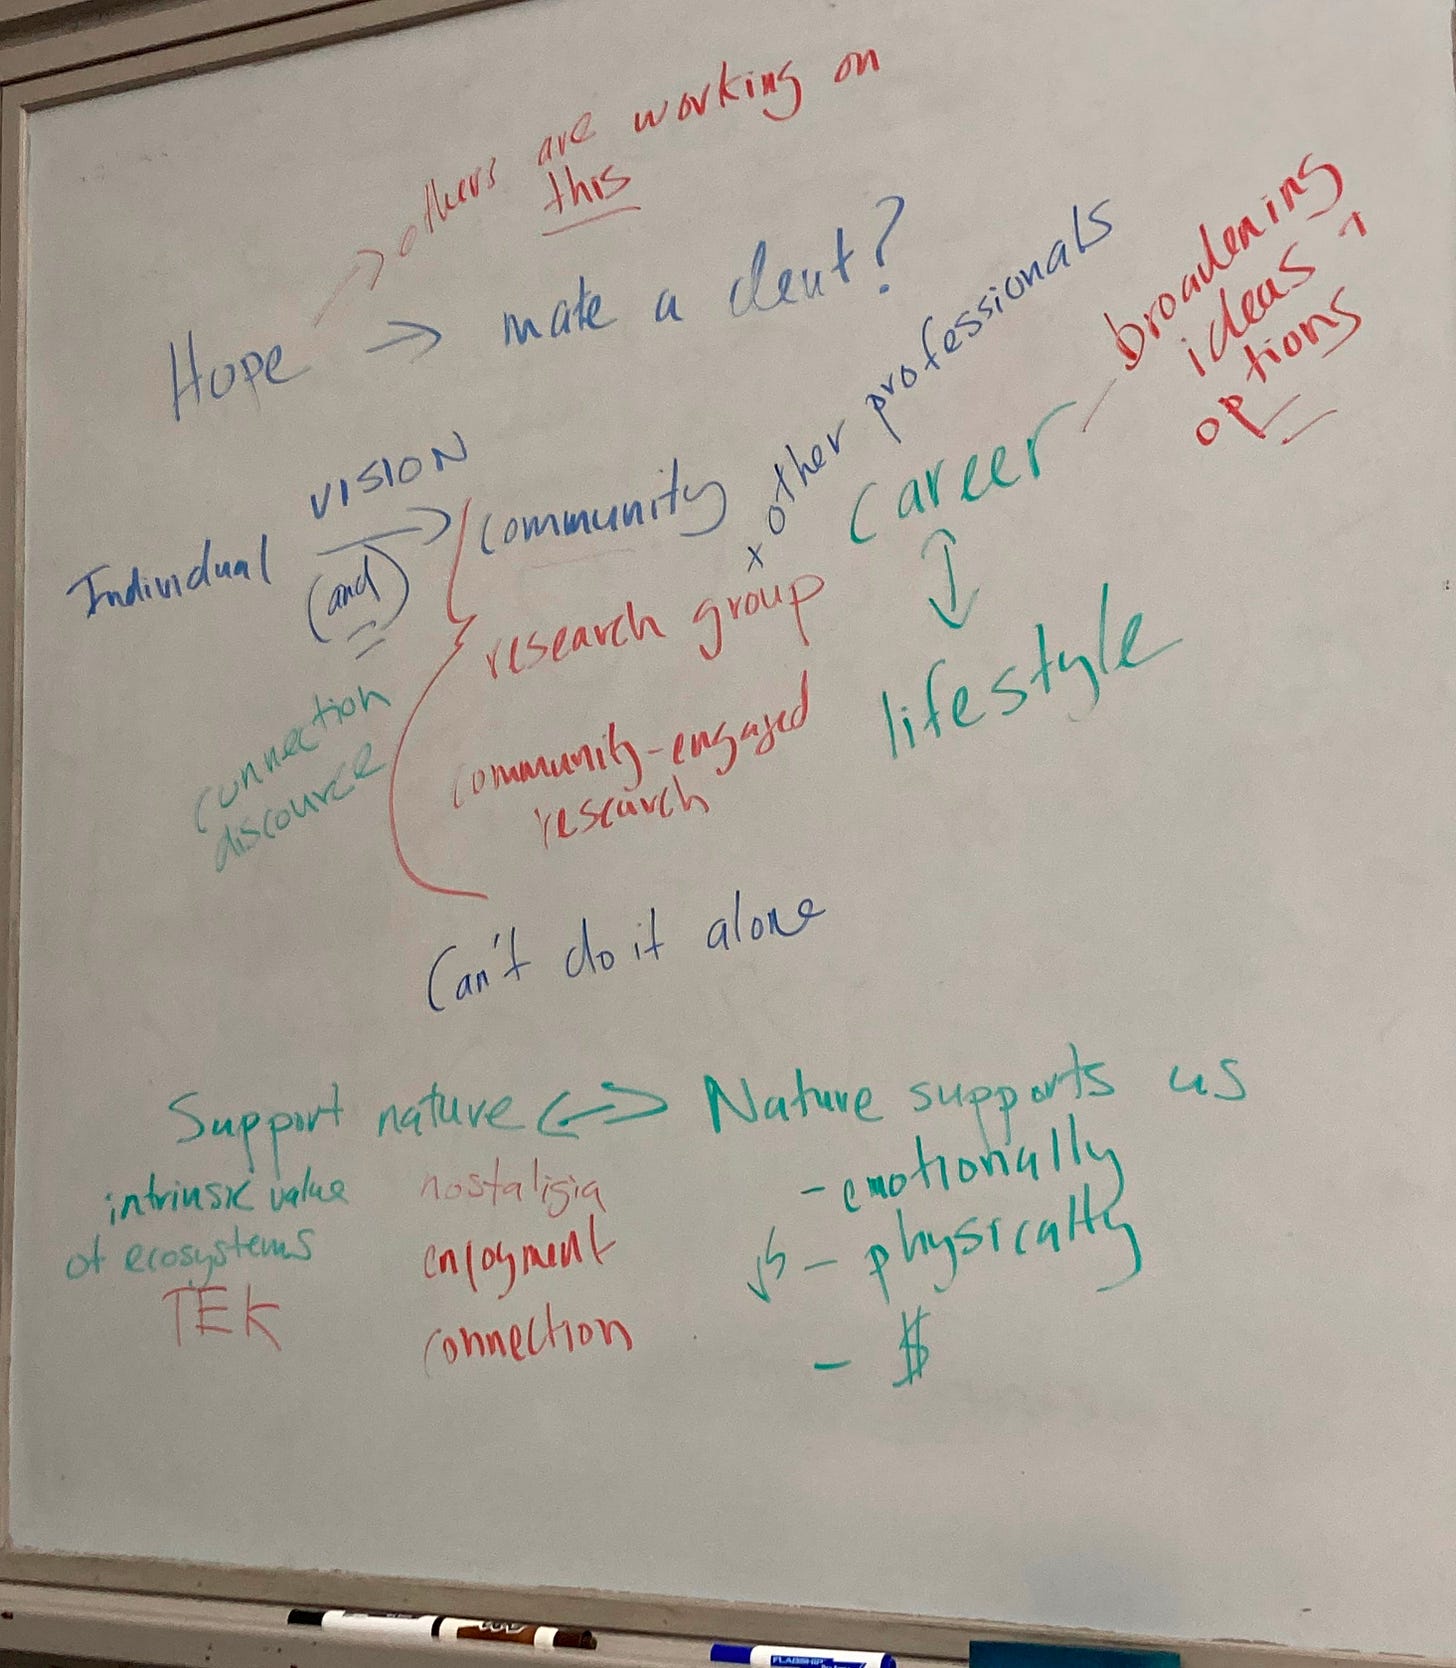 others are working on
this
Hope → make a dent?
broadening
ideas ↑
options
Individual
VISION
(and)
→ community
x other professionals
career
↕
lifestyle
research group
community-engaged
research
connection
discource
Can't do it alone
Support nature ↔ Nature supports us
intrinsic value
of ecosystems
TEK
nostaligia
enjoyment
connection
- emotionally
- physically
- $
FLAGSHIP